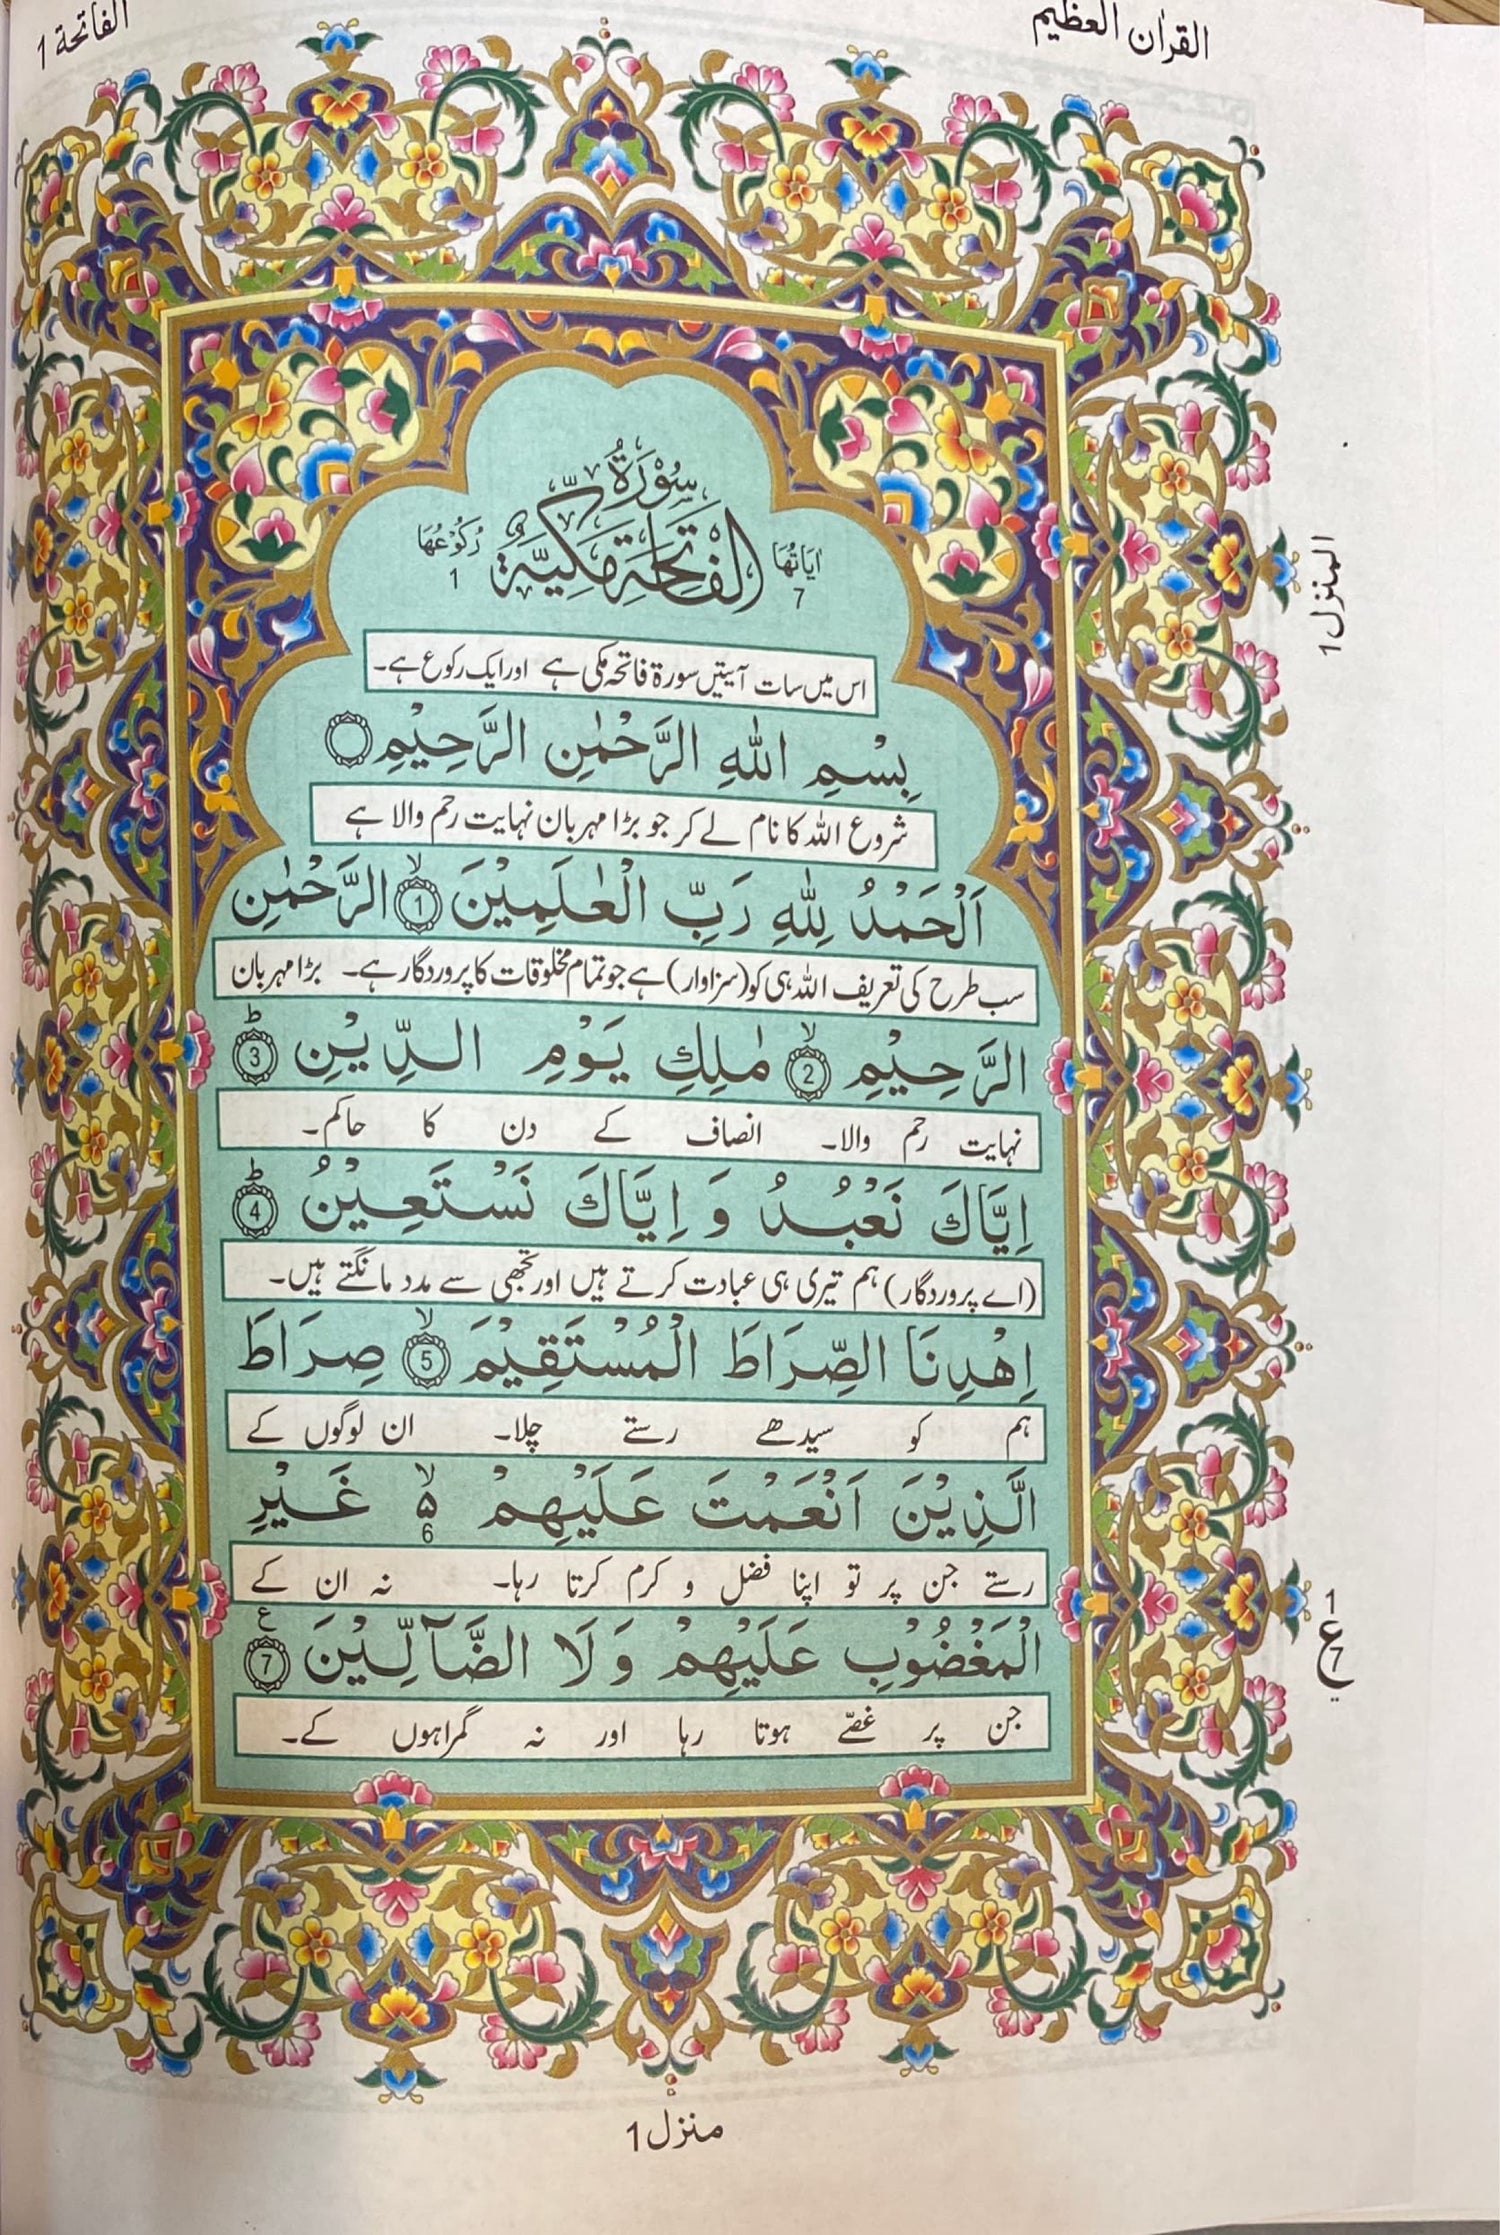 القرآن العظيم
الفاتحة 1
سُوْرَةُ
الْفَاتِحَةِ مَكِّيَّةٌ
اٰیَاتُهَا
7
رُكُوْعُهَا
1
المنزل 1
اس میں سات آیتیں سورۃ فاتحہ مکی ہے اور ایک رکوع ہے۔
بِسْمِ اللّٰهِ الرَّحْمٰنِ الرَّحِيْمِ
شروع اللہ کا نام لے کر جو بڑا مہربان نہایت رحم والا ہے
اَلْحَمْدُ لِلّٰهِ رَبِّ الْعٰلَمِيْنَ ۙ 1 الرَّحْمٰنِ
سب طرح کی تعریف اللہ ہی کو (سزاوار) ہے جو تمام مخلوقات کا پروردگار ہے۔ بڑا مہربان
الرَّحِيْمِ ۙ 2 مٰلِكِ يَوْمِ الدِّيْنِ ؕ 3
نہایت رحم والا۔ انصاف کے دن کا حاکم۔
اِيَّاكَ نَعْبُدُ وَ اِيَّاكَ نَسْتَعِيْنُ ؕ 4
(اے پروردگار) ہم تیری ہی عبادت کرتے ہیں اور تجھی سے مدد مانگتے ہیں۔
اِهْدِنَا الصِّرَاطَ الْمُسْتَقِيْمَ ۙ 5 صِرَاطَ
ہم کو سیدھے رستے چلا۔ ان لوگوں کے
الَّذِيْنَ اَنْعَمْتَ عَلَيْهِمْ ۙ ۵ 6 غَيْرِ
رستے جن پر تو اپنا فضل و کرم کرتا رہا۔ نہ ان کے
الْمَغْضُوْبِ عَلَيْهِمْ وَلَا الضَّآلِّيْنَ ع 7
جن پر غصّے ہوتا رہا اور نہ گمراہوں کے۔
1
ع
7
منزل 1